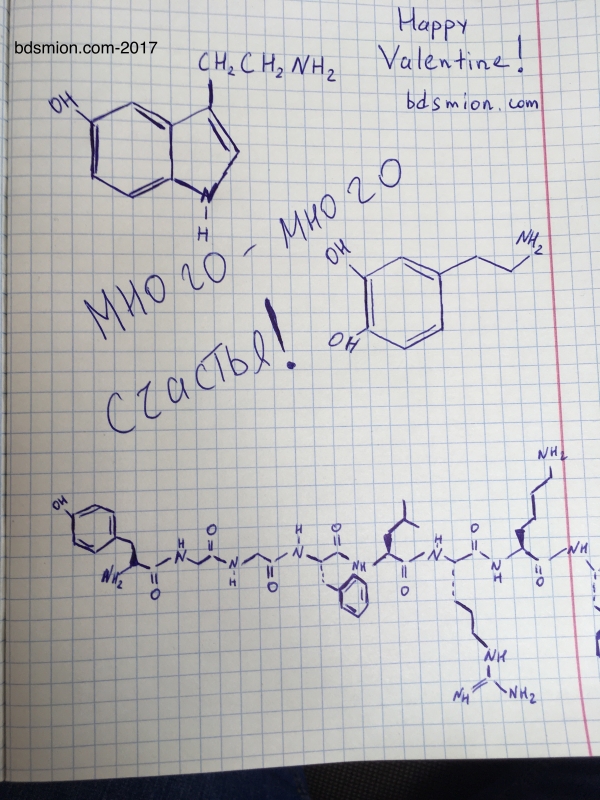 bdsmion.com-2017
Happy
Valentine!
bdsmion.com
CH₂CH₂NH₂
OH
N
H
много - много
счастья!
OH
NH₂
OH
NH₂
OH
H
N
O
H
N
O
NH
NH₂
O
N
H
O
NH
O
N
H
O
NH
NH
NH₂